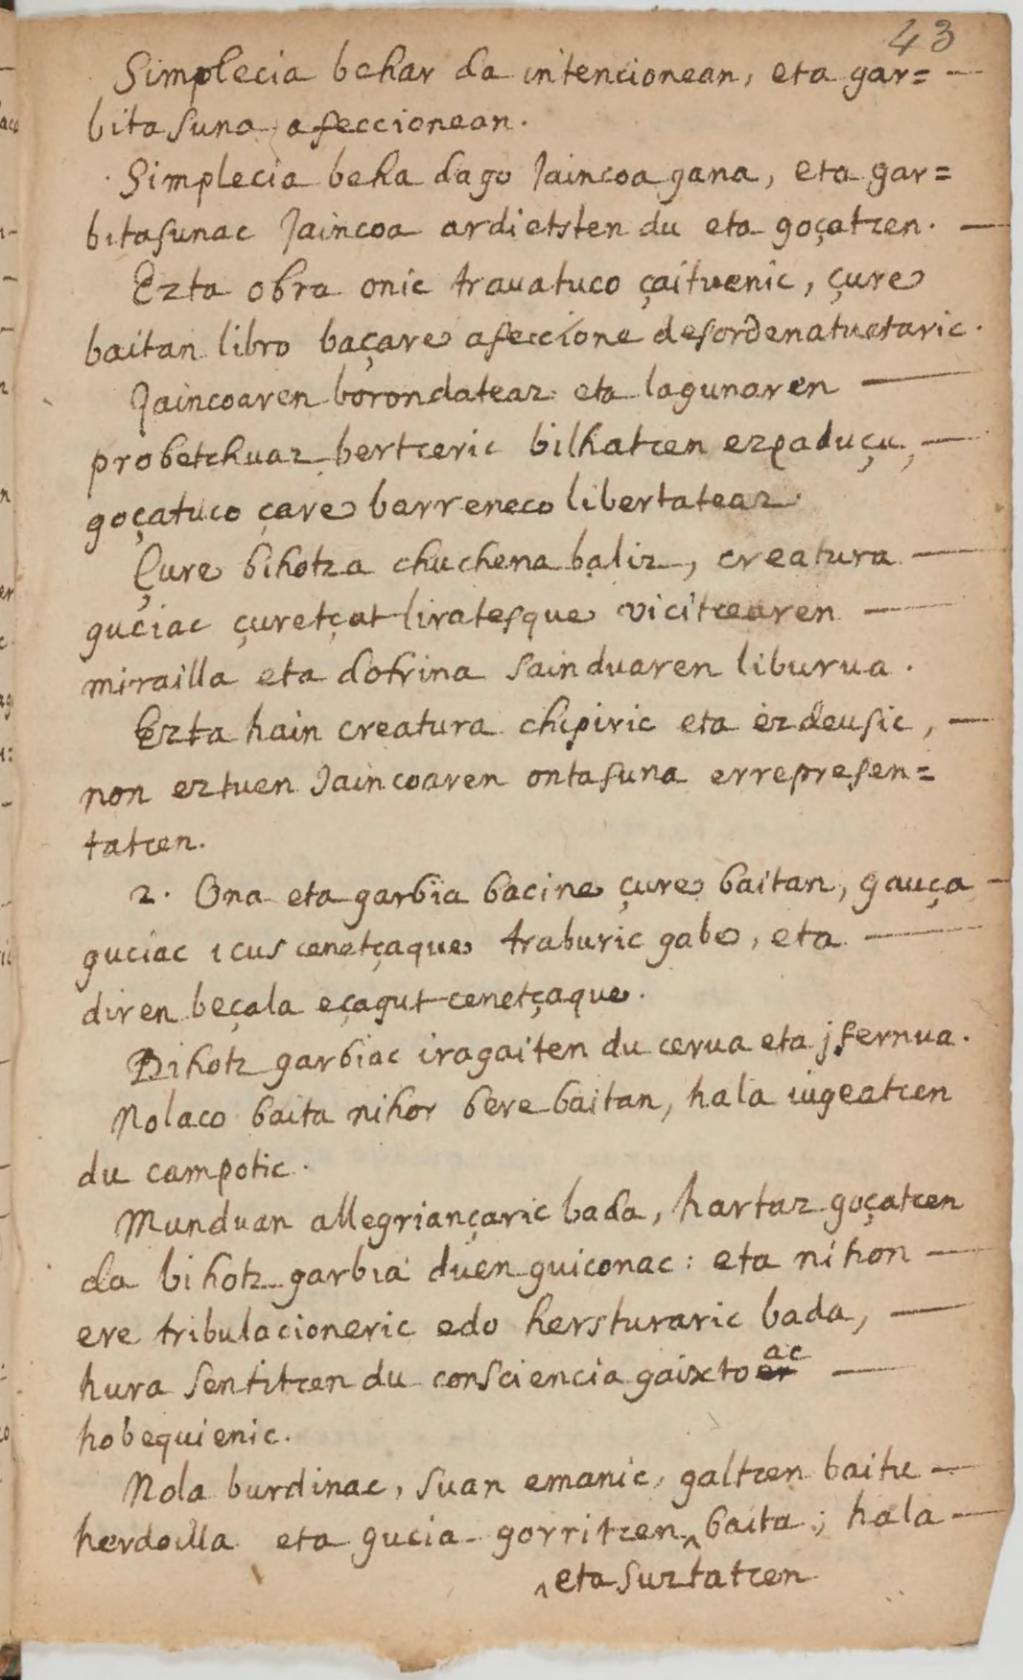 43
Simplecia behar da intencionean, eta gar=
bitasuna afeccionean.
Simplecia beha dago Jaincoa gana, eta gar=
bitasunac Jaincoa ardietsten du eta goçatcen.
Ezta obra onic trauatuco çaituenic, çure
baitan libro baçare afeccione desordenatuetaric.
Jaincoaren borondateaz eta lagunaren
probetchuaz bertceric bilhatcen ezpaduçu,
goçatuco çare barreneco libertateaz.
Çure bihotza chuchena baliz, creatura
guciac çuretçat liratesque vicitcearen
miralla eta dotrina sainduaren liburua.
Ezta hain creatura chipiric eta ezdeusic,
non eztuen Jaincoaren ontasuna errepresen=
tatcen.
2. Ona eta garbia bacine çure baitan, gauça
guciac icus cenetçaque traburic gabe, eta
diren beçala eçagut cenetçaque.
Bihotz garbiac iragaiten du cerua eta jfernua.
Nolaco baita nihor bere baitan, hala iugeatcen
du campotic.
Munduan allegriançaric bada, hartaz goçatcen
da bihotz garbia duen guiconac: eta nihon
ere tribulacioneric edo hersturaric bada,
hura sentitcen du consciencia gaixtoac
hobequienic.
Nola burdinac, suan emanic, galtcen baitu
herdoilla eta gucia gorritzen ^ baita; hala
^ eta suztatcen